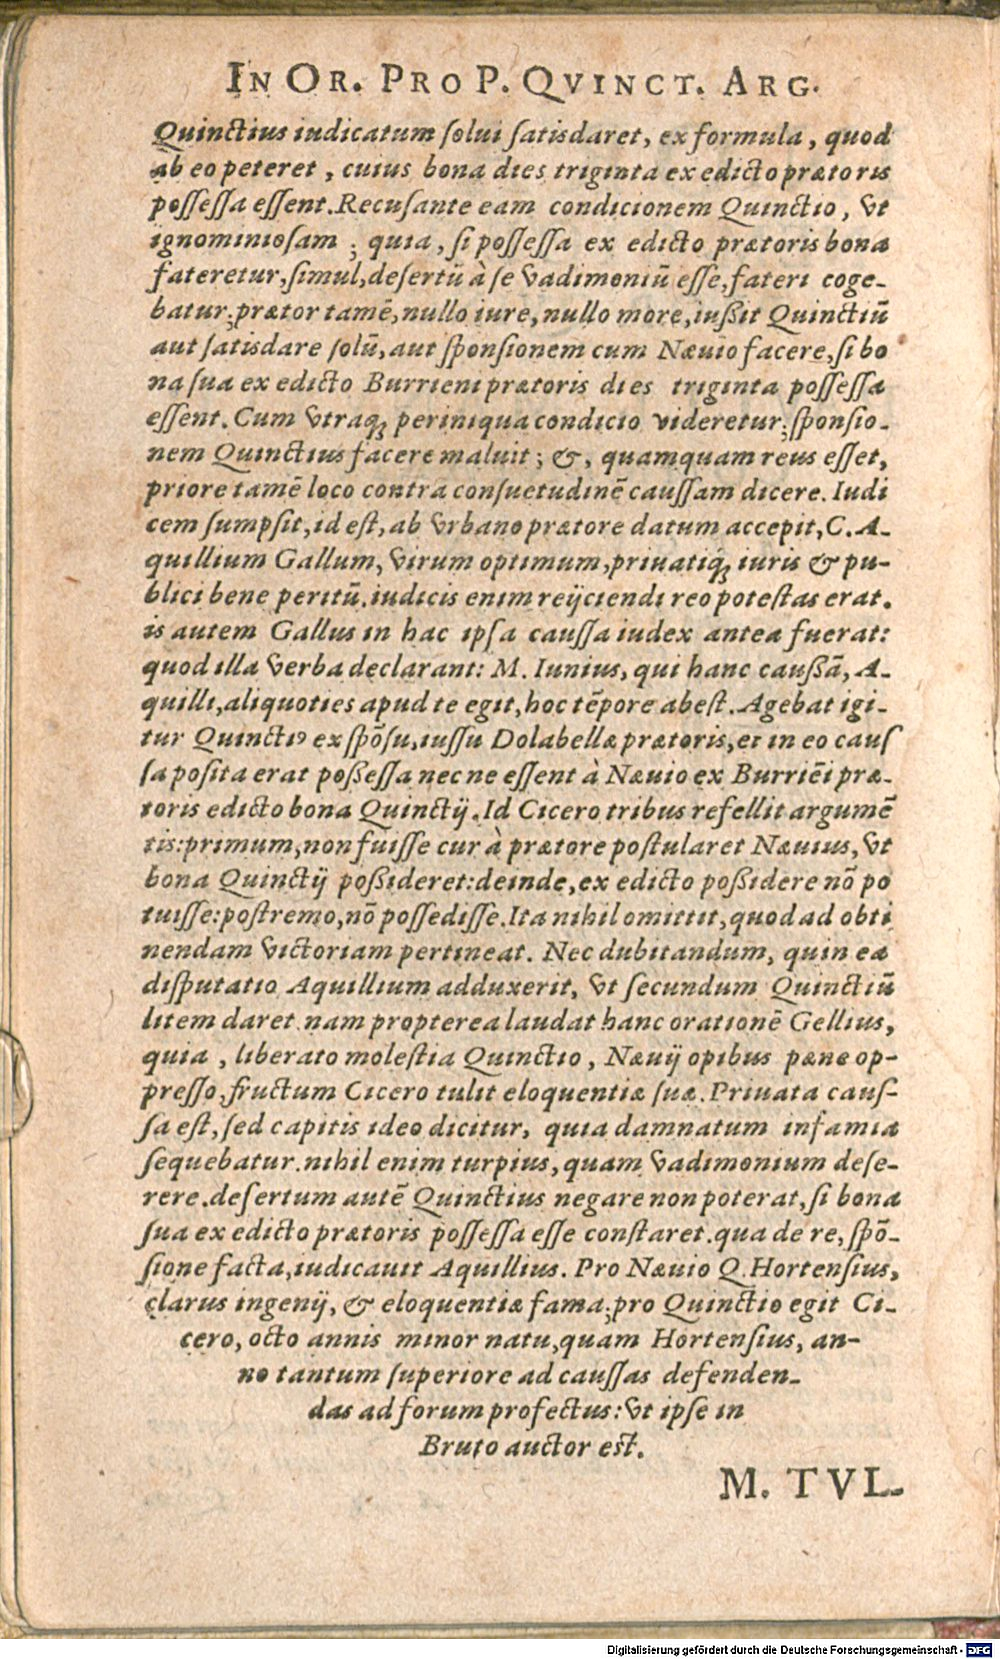 IN OR. PRO P. QVINCT. ARG.
Quinctius iudicatum solui satisdaret, ex formula, quod
ab eo peteret, cuius bona dies triginta ex edicto prætoris
possessa essent. Recusante eam condicionem Quinctio, vt
ignominiosam; quia, si possessa ex edicto prætoris bona
fateretur, simul, desertū à se vadimoniū esse, fateri coge-
batur; prætor tamē, nullo iure, nullo more, iußit Quinctiū
aut satisdare solū, aut sponsionem cum Næuio facere, si bo
na sua ex edicto Burrieni prætoris dies triginta possessa
essent. Cum vtraq; periniqua condicio videretur; sponsio-
nem Quinctius facere maluit; &, quamquam reus esset,
priore tamē loco contra consuetudinē caussam dicere. Iudi
cem sumpsit, id est, ab vrbano prætore datum accepit, C. A-
quillium Gallum, virum optimum, priuatiq́; iuris & pu-
blici bene peritū. iudicis enim reijciendi reo potestas erat.
is autem Gallus in hac ipsa caussa iudex antea fuerat:
quod illa verba declarant: M. Iunius, qui hanc caußā, A-
quilli, aliquoties apud te egit, hoc tēpore abest. Agebat igi-
tur Quinctiꝰ ex spōsu, iussu Dolabellæ prætoris, et in eo caus
sa posita erat poßessa nec ne essent à Næuio ex Burriēi præ-
toris edicto bona Quinctij. Id Cicero tribus refellit argumē
tis: primum, non fuisse cur à prætore postularet Næuius, vt
bona Quinctij poßideret: deinde, ex edicto poßidere nō po
tuisse: postremo, nō possedisse. Ita nihil omittit, quod ad obti
nendam victoriam pertineat. Nec dubitandum, quin ea
disputatio Aquillium adduxerit, vt secundum Quinctiū
litem daret. nam propterea laudat hanc orationē Gellius,
quia, liberato molestia Quinctio, Næuij opibus pæne op-
presso, fructum Cicero tulit eloquentiæ suæ. Priuata caus-
sa est, sed capitis ideo dicitur, quia damnatum infamia
sequebatur. nihil enim turpius, quam vadimonium dese-
rere. desertum autē Quinctius negare non poterat, si bona
sua ex edicto prætoris possessa esse constaret. qua de re, spō-
sione facta, iudicauit Aquillius. Pro Næuio Q. Hortensius,
clarus ingenij, & eloquentiæ fama; pro Quinctio egit Ci-
cero, octo annis minor natu, quam Hortensius, an-
no tantum superiore ad caussas defenden-
das ad forum profectus: vt ipse in
Bruto auctor est.
M. TVL-
Digitalisierung gefördert durch die Deutsche Forschungsgemeinschaft - DFG